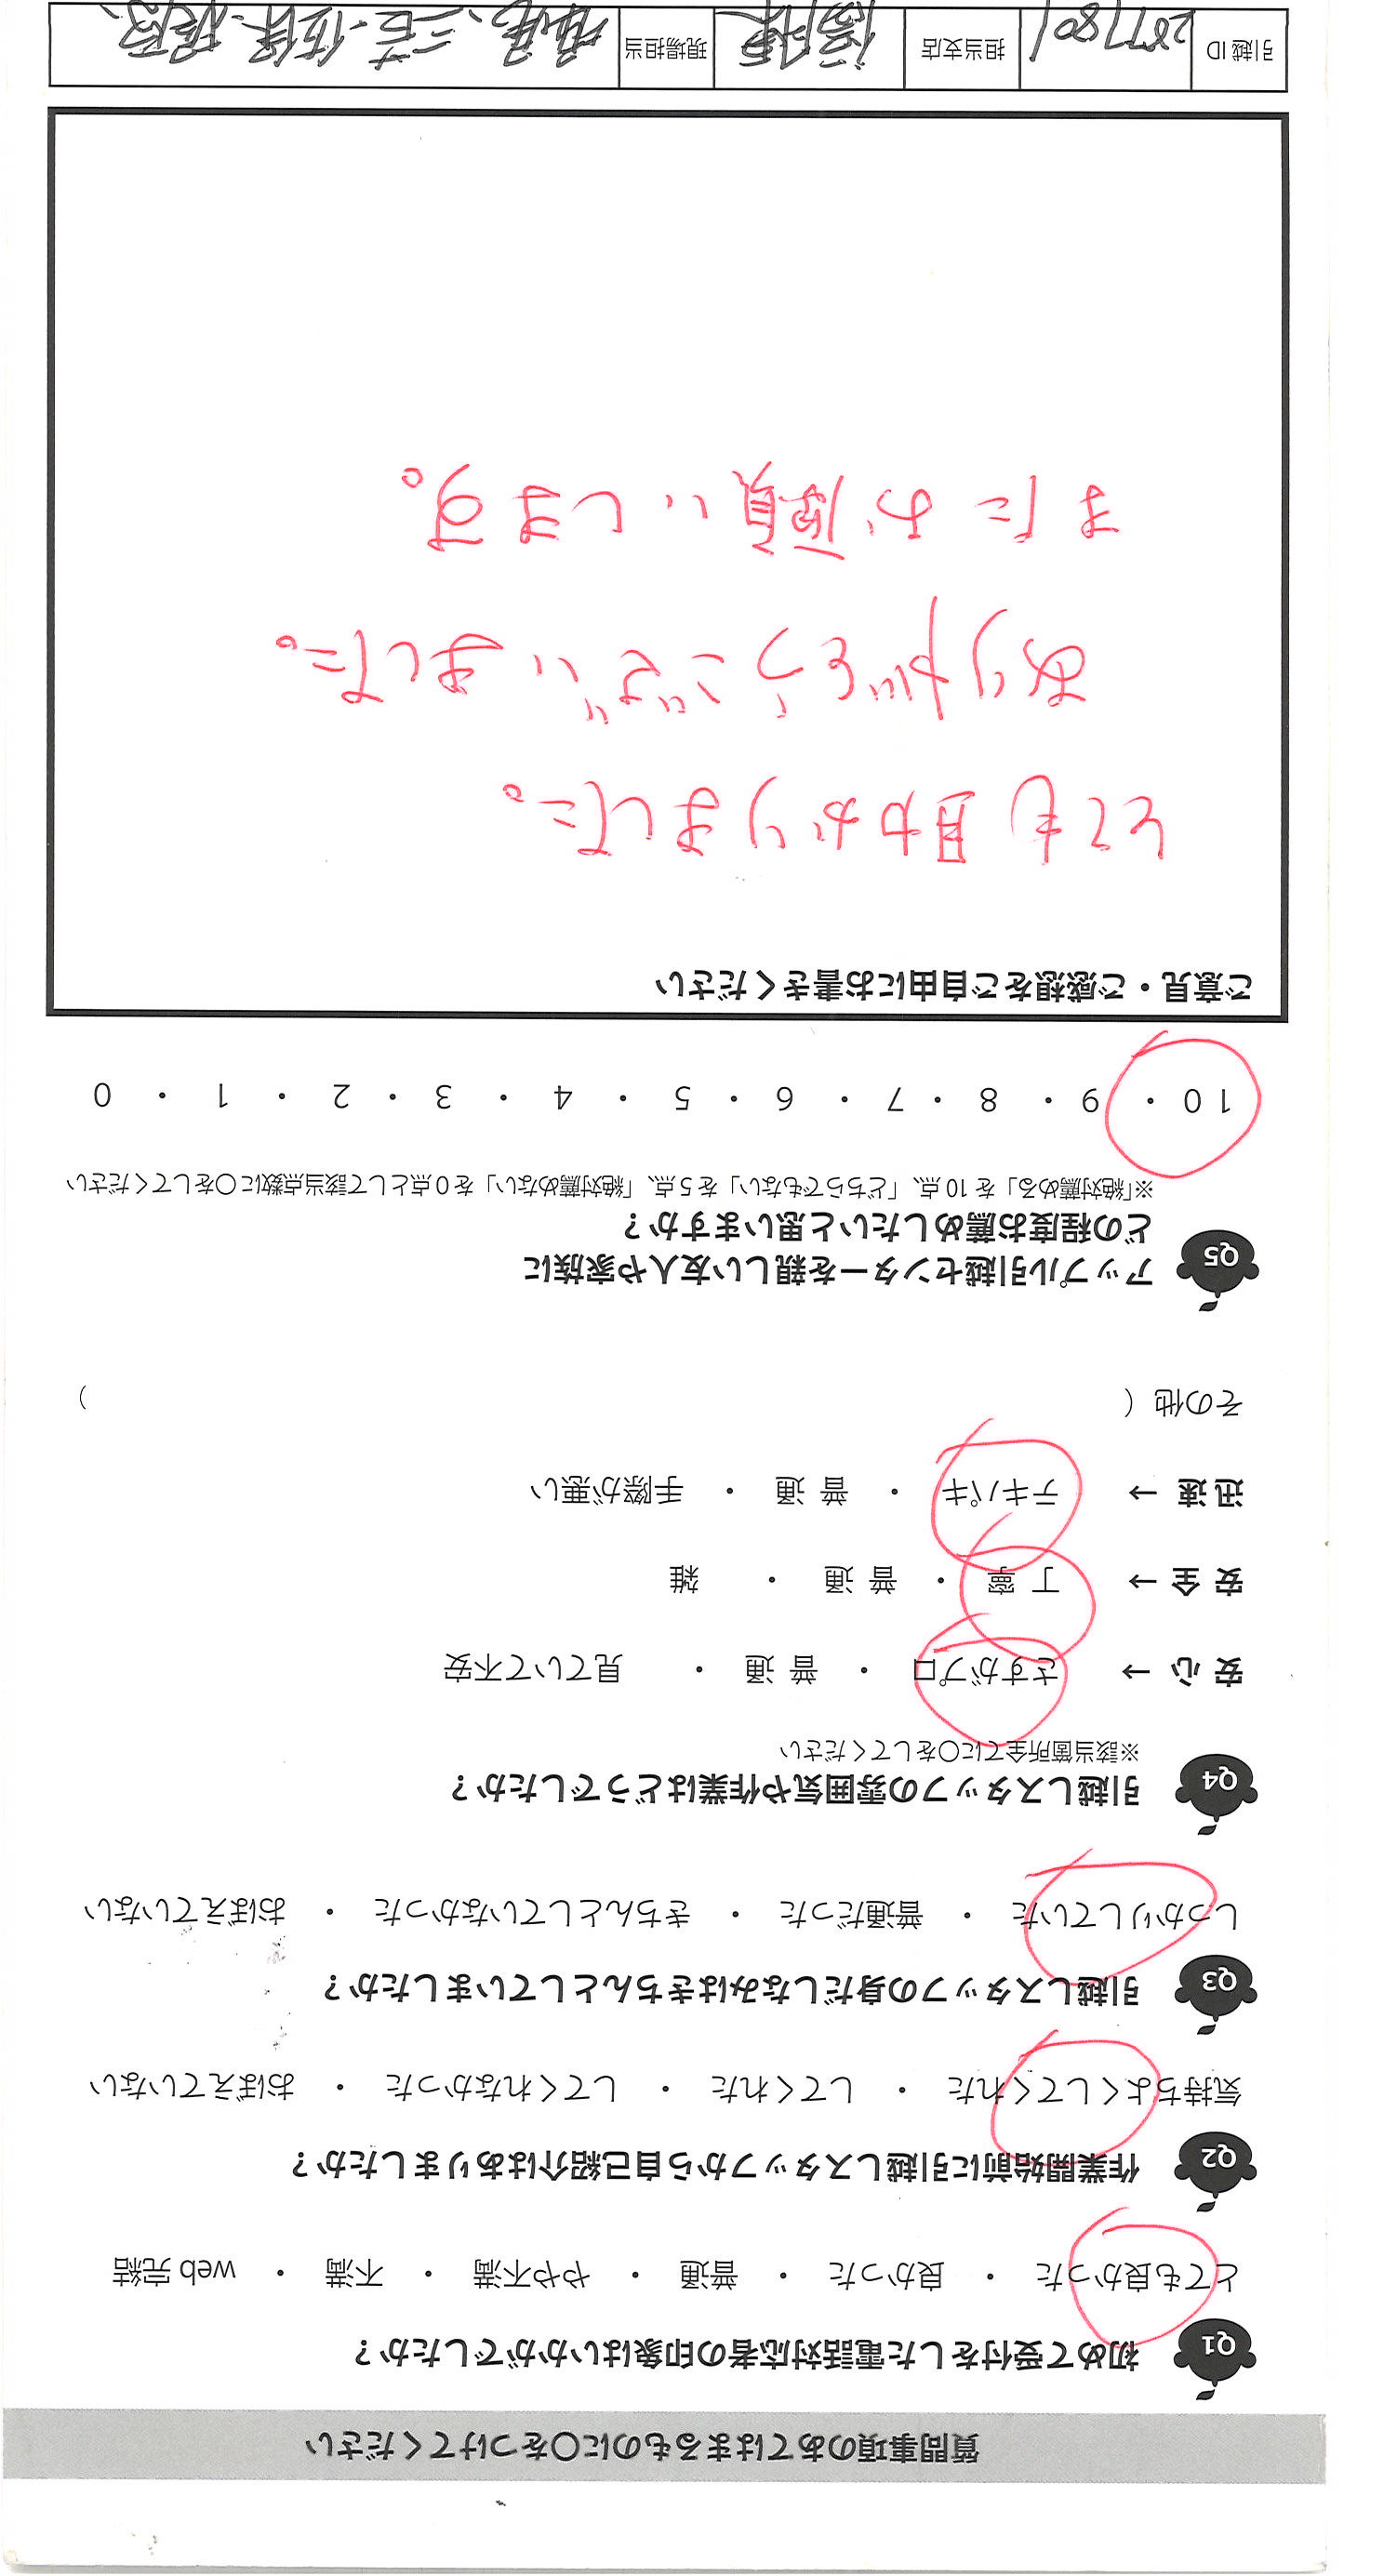 質問事項のあてはまるものに〇をつけてください
Q1 初めて受付をした電話対応者の印象はいかがでしたか？
とても良かった ・ 良かった ・ 普通 ・ やや不満 ・ 不満 ・ web完結
Q2 作業開始前に引越しスタッフから自己紹介はありましたか？
気持ちよくしてくれた ・ してくれた ・ してくれなかった ・ おぼえていない
Q3 引越しスタッフの身だしなみはきちんとしていましたか？
しっかりしていた ・ 普通だった ・ きちんとしていなかった ・ おぼえていない
Q4 引越しスタッフの雰囲気や作業はどうでしたか？
※該当箇所全てに〇をしてください
安 心 → さすがプロ ・ 普 通 ・ 見ていて不安
安 全 → 丁 寧 ・ 普 通 ・ 雑
迅 速 → テキパキ ・ 普 通 ・ 手際が悪い
その他（ ）
Q5 アップル引越センターを親しい友人や家族に
どの程度お薦めしたいと思いますか？
※「絶対薦める」を10点、「どちらでもない」を5点、「絶対薦めない」を0点として該当点数に〇をしてください
10 ・ 9 ・ 8 ・ 7 ・ 6 ・ 5 ・ 4 ・ 3 ・ 2 ・ 1 ・ 0
ご意見・ご感想をご自由にお書きください
とても助かりました。
ありがとうございました。
またお願いします。
引越ID 2877801 担当支店 現場担当